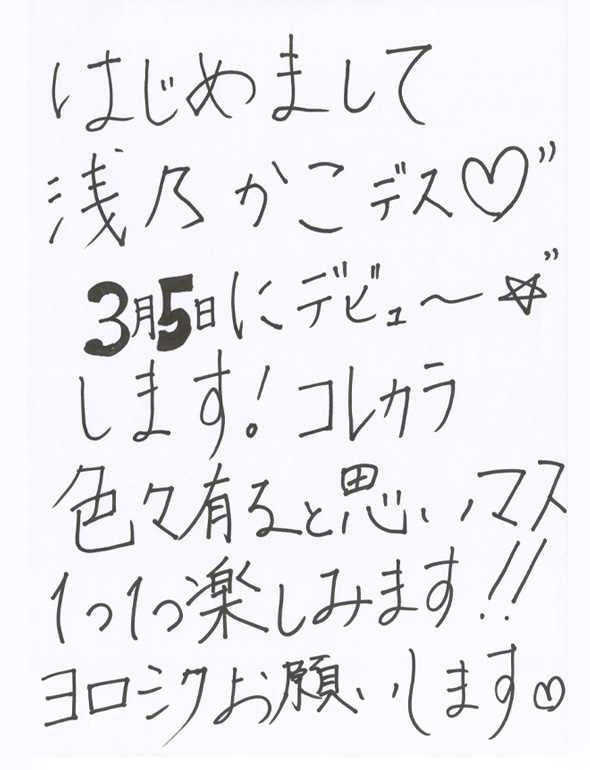 はじめまして
浅乃かこデス♡”
3月5日にデビュ〜☆”
します!コレカラ
色々有ると思いマス
1つ1つ楽しみます!!
ヨロシクお願いします♡